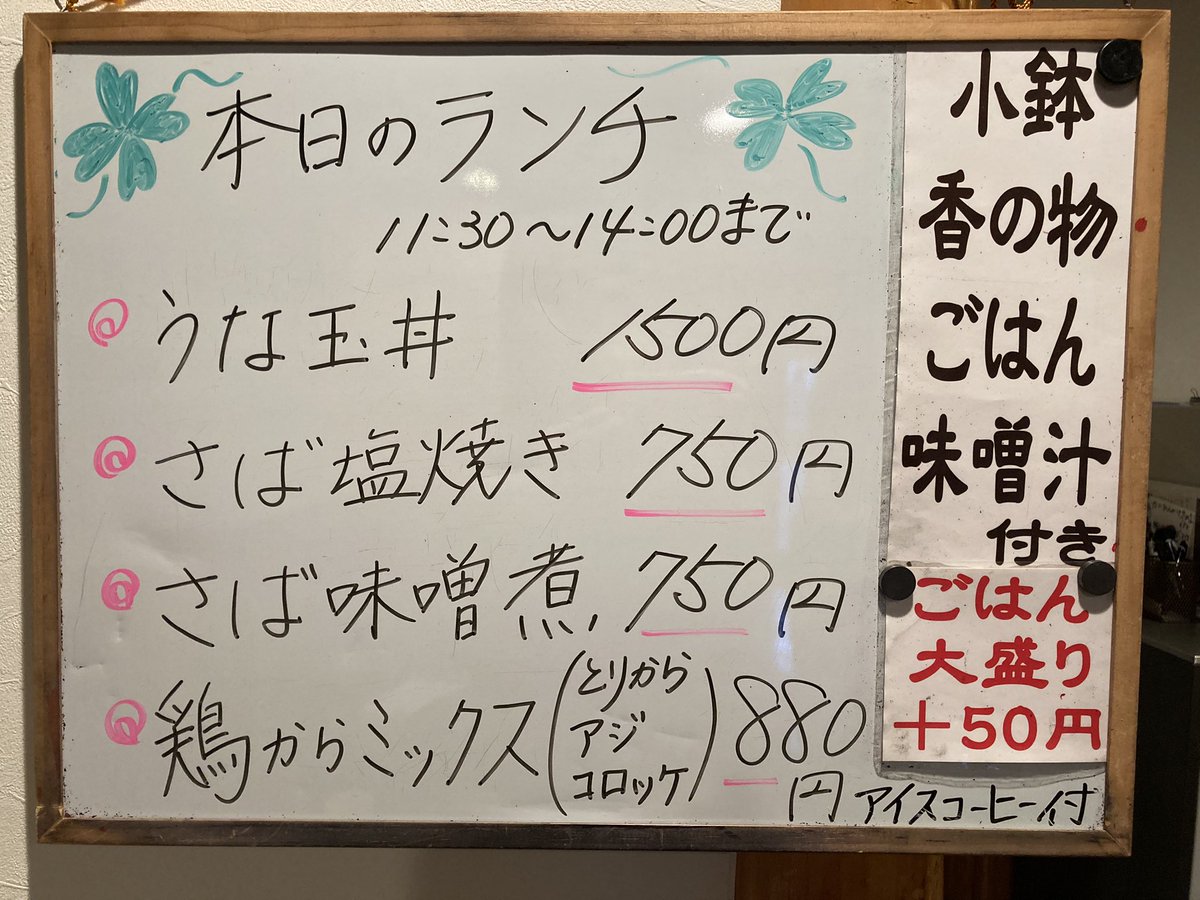 本日のランチ
11:30〜14:00まで
うな玉丼 1500円
さば塩焼き 750円
さば味噌煮 750円
鶏からミックス(とりから
アジ
コロッケ) 880
円
アイスコーヒー付
小鉢
香の物
ごはん
味噌汁
付き
ごはん
大盛り
+50円